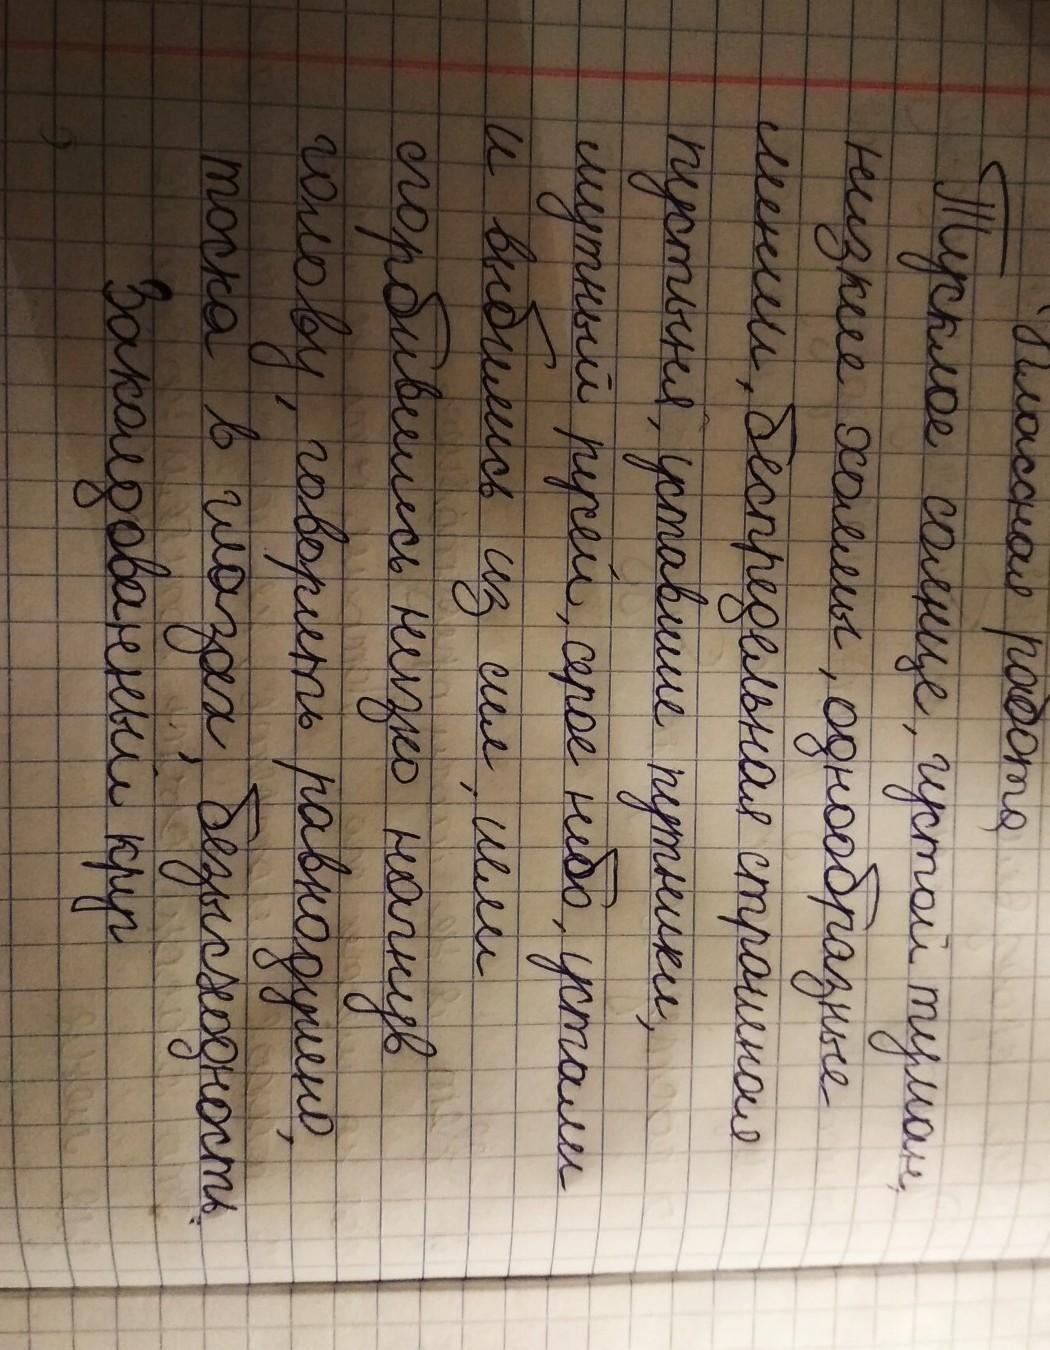 Классная работа
Тусклое солнце, густой туман,
низкие холмы, однообразные
линии, беспредельная странная
пустыня, уставшие путники,
мутный ручей, серое небо, устали
и выбились из сил, шли
сгорбившись низко нагнув
голову, говорить равнодушно,
тоска в глазах, безысходность.
Заколдованный круг